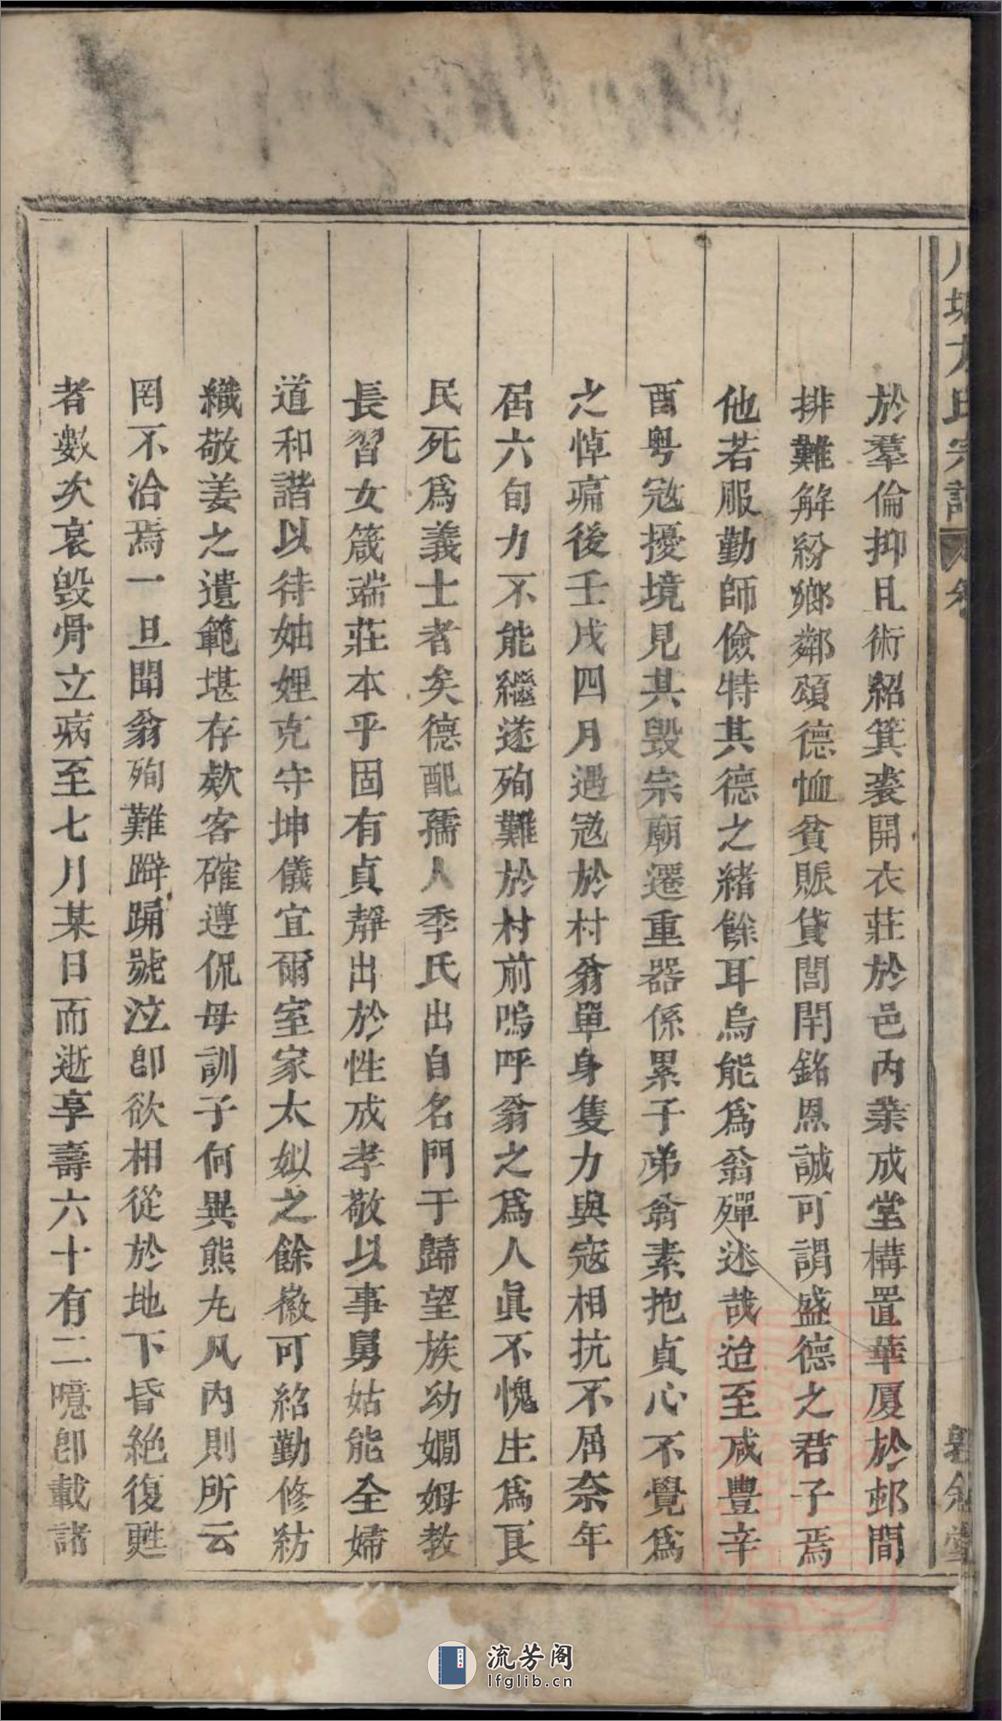 於羣倫抑且術紹箕裘開衣莊於邑內業成堂構置華厦於邨間
排難解紛鄉鄰頌德恤貧賑貸閭閈銘恩誠可謂盛德之君子焉
他若服勤師儉特其德之緒餘耳烏能爲翁殫述哉迨至咸豐辛
酉粤寇擾境見其毁宗廟遷重器係累子弟翁素抱貞心不覺爲
之悼痛後壬戌四月遇寇於村翁單身隻力與寇相抗不屈奈年
屆六旬力不能繼遂殉難於村前嗚呼翁之爲人眞不愧生爲良
民死爲義士者矣德配孺人季氏出自名門于歸望族幼嫺姆教
長習女箴端莊本乎固有貞靜出於性成孝敬以事舅姑能全婦
道和諧以待妯娌克守坤儀宜爾室家太姒之餘徽可紹勤修紡
織敬姜之遺範堪存欵客確遵侃母訓子何異熊丸凡內則所云
罔不洽焉一旦聞翁殉難躃踊號泣卽欲相從於地下昏絶復甦
者數次哀毁骨立病至七月某日而逝享壽六十有二噫卽載諸
方氏宗譜 卷
敘堂
流芳阁
lfglib.cn